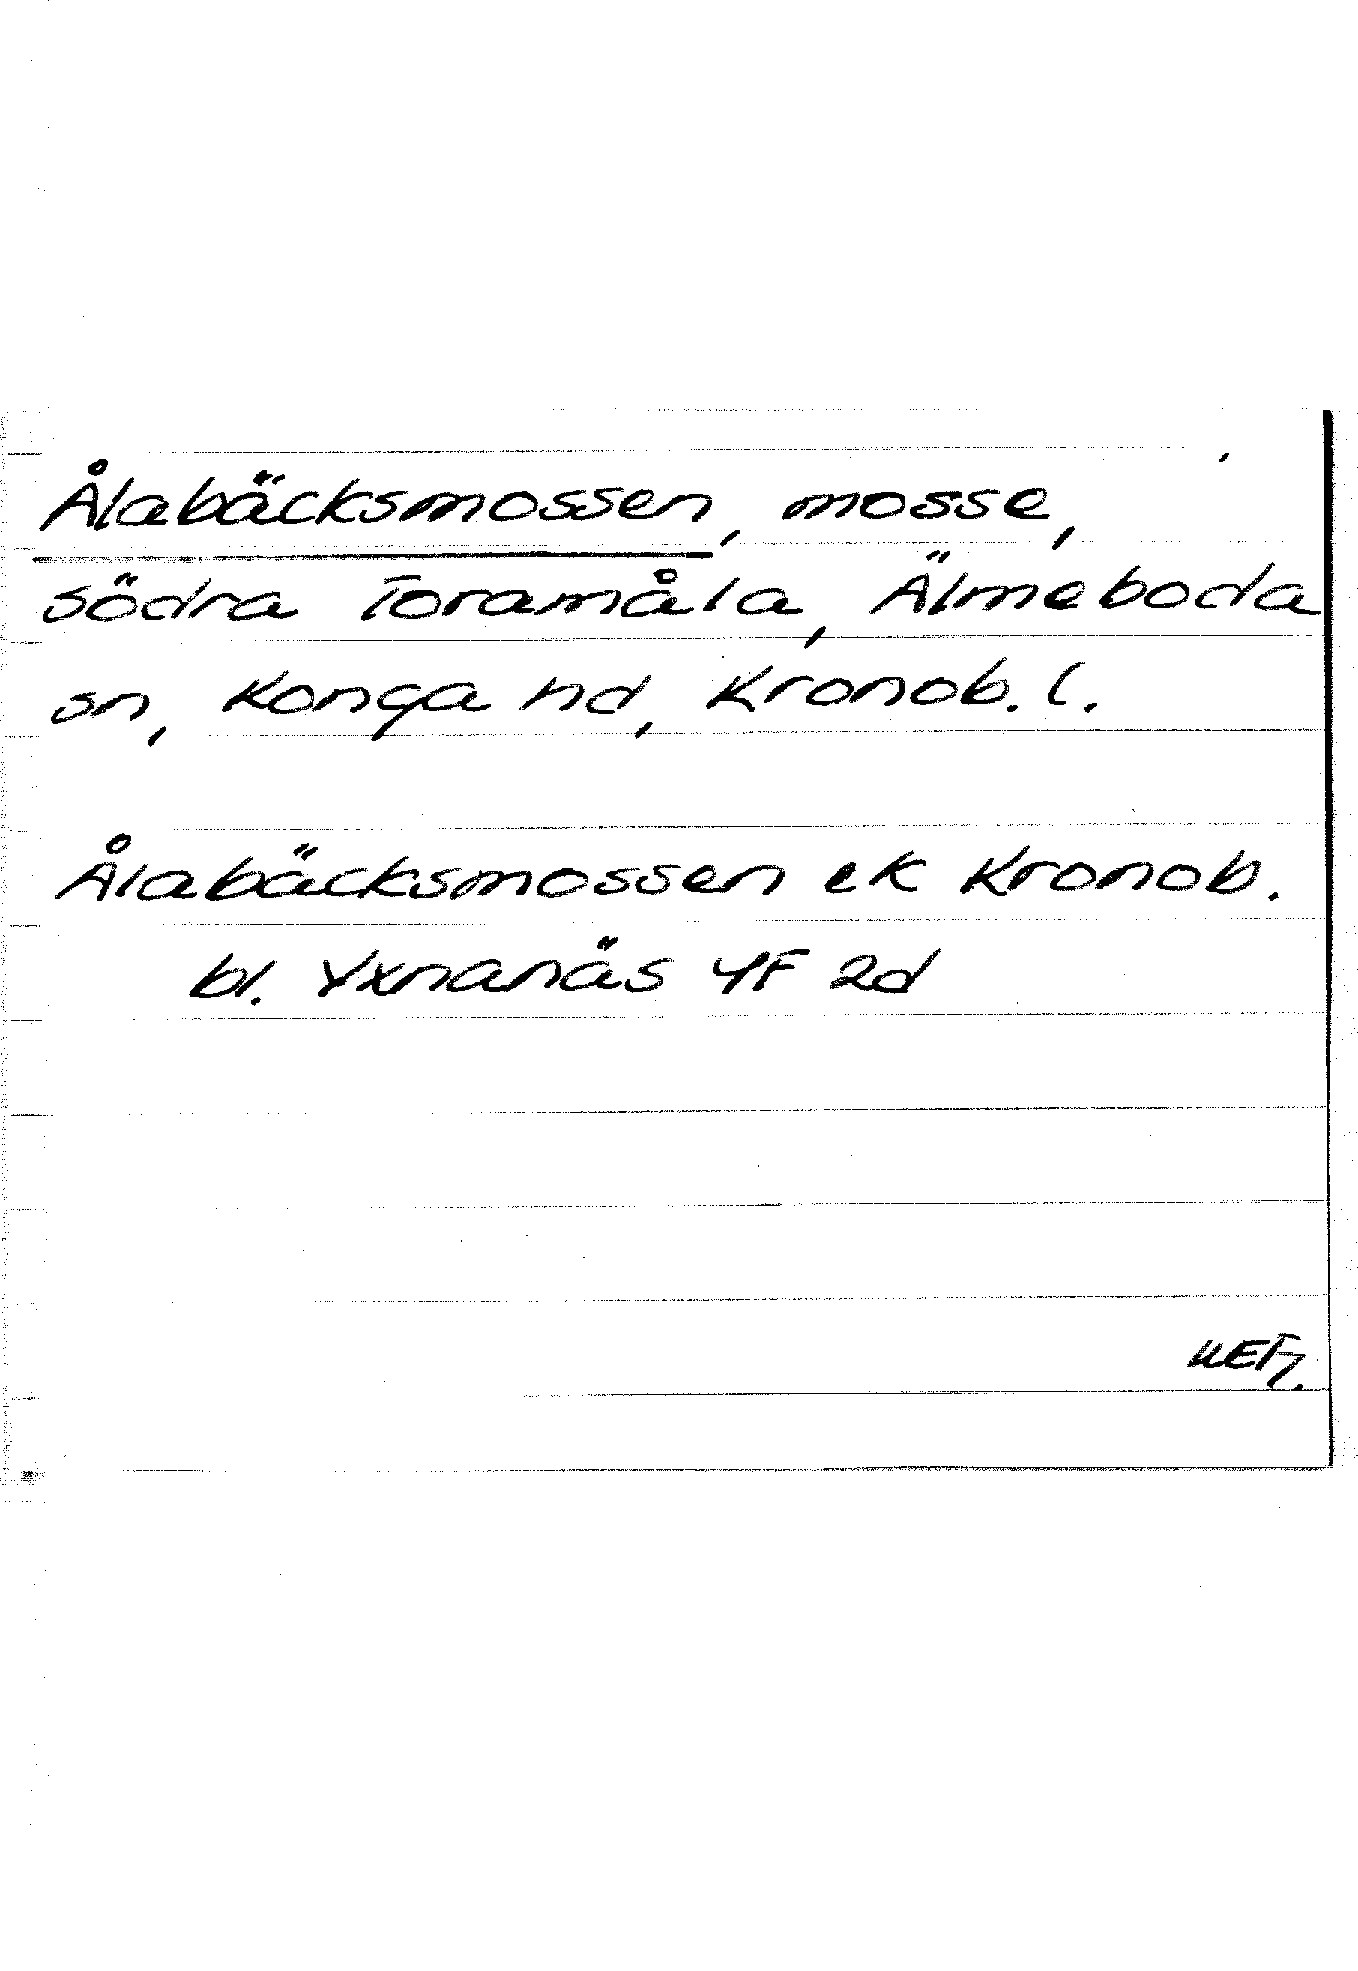 Ålabäcksmossen, mosse,
södra Toramåla, Älmeboda
sn, Konga hd, Kronob. l.
Ålabäcksmossen ek Kronob.
bl. Yxnanäs 4F 2d